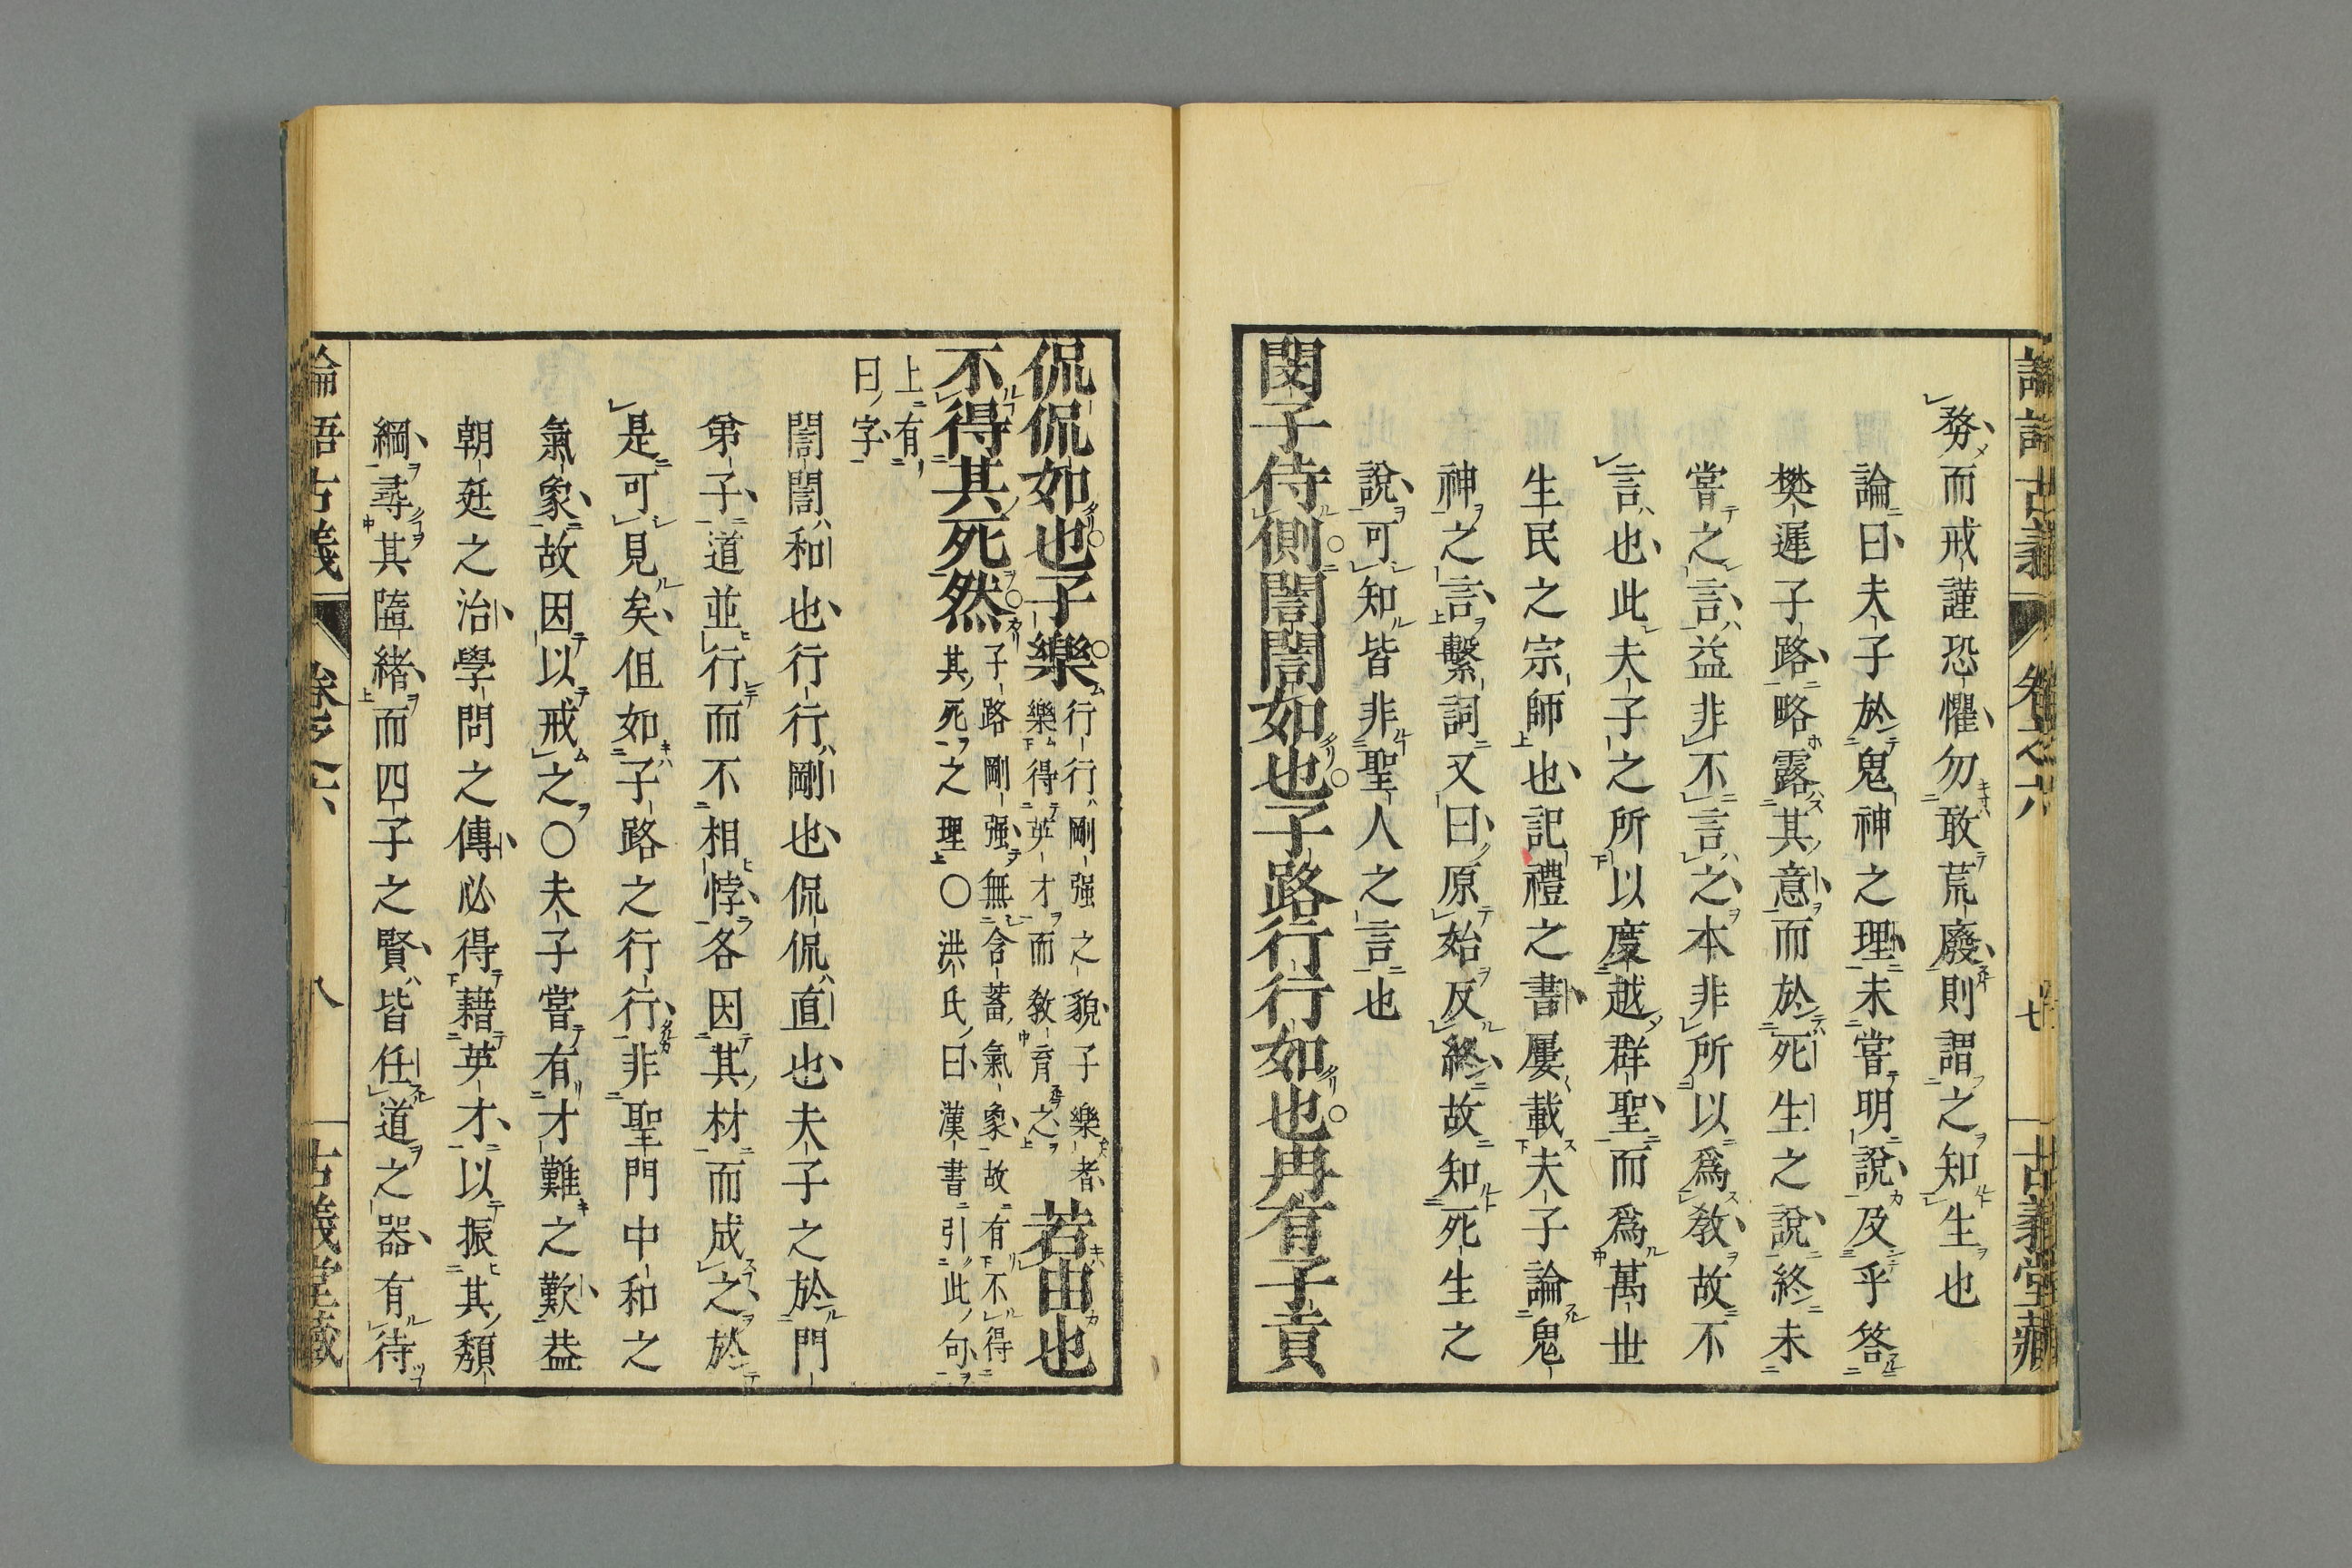 論語古義 卷之六 古義堂藏
務而戒謹恐懼勿敢荒廢則謂之知生也
論曰夫子於鬼神之理未嘗明說及乎答
樊遲子路略露其意而於死生之說終未
嘗之言益非不言之本非所以爲敎故不
言也此夫子之所以度越群聖而爲萬世
生民之宗師也記禮之書屢載夫子論鬼
神之言繫詞又曰原始反終故知死生之
說可知皆非聖人之言也
閔子侍側誾誾如也子路行行如也冉有子貢
侃侃如也子樂行行剛强之貌子樂者樂得英才而敎育之若由也
不得其死然子路剛强無含蓄氣象故有不得其死之理〇洪氏曰漢書引此句
上有曰字
誾誾和也行行剛也侃侃直也夫子之於門
弟子道並行而不相悖各因其材而成之於
是可見矣但如子路之行行非聖門中和之
氣象故因以戒之〇夫子嘗有才難之歎葢
朝廷之治學問之傳必得藉英才以振其頽
綱尋其墮緒而四子之賢皆任道之器有待
論語古義 卷之六 八 古義堂藏